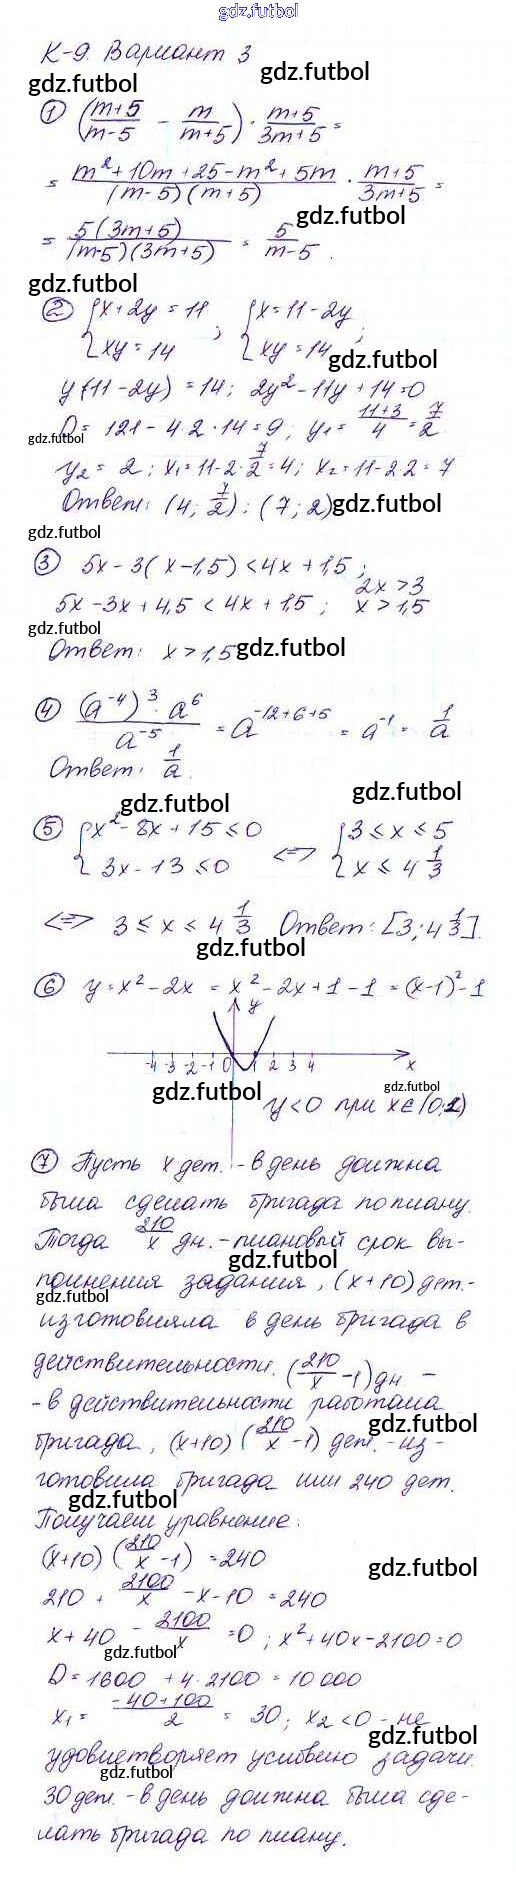 gdz.futbol
К-9. Вариант 3
gdz.futbol gdz.futbol
① ((m+5)/(m-5) - m/(m+5)) · (m+5)/(3m+5) =
= (m²+10m+25-m²+5m)/((m-5)(m+5)) · (m+5)/(3m+5) =
gdz.futbol
= 5(3m+5)/((m-5)(3m+5)) = 5/(m-5).
gdz.futbol
② {x+2y=11 xy=14 ; {x=11-2y xy=14 ;
gdz.futbol
y(11-2y)=14; 2y²-11y+14=0
D=121-4·2·14=9; y₁=(11+3)/4=7/2
gdz.futbol
y₂=2; x₁=11-2·7/2=4; x₂=11-2·2=7
Ответ: (4; 7/2); (7; 2) gdz.futbol
gdz.futbol
③ 5x-3(x-1,5)<4x+1,5;
5x-3x+4,5<4x+1,5; 2x>3 x>1,5
gdz.futbol
Ответ: x>1,5 gdz.futbol
④ ((a⁻⁴)³·a⁶)/a⁻⁵ = a⁻¹²⁺⁶⁺⁵ = a⁻¹ = 1/a
Ответ: 1/a.
gdz.futbol gdz.futbol
⑤ {x²-8x+15≤0 3x-13≤0 <=> {3≤x≤5 x≤4 1/3
<=> 3≤x≤4 1/3 Ответ: [3; 4 1/3].
gdz.futbol
⑥ y=x²-2x=x²-2x+1-1=(x-1)²-1
y
-4 -3 -2 -1 0 1 2 3 4 x
gdz.futbol gdz.futbol
y<0 при x∈(0;2)
⑦ Пусть x дет. - в день должна
была сделать бригада по плану.
Тогда 210/x дн. - плановый срок вы-
gdz.futbol
полнения задания, (x+10) дет.-
gdz.futbol
изготовляла в день бригада в
действительности. (210/x -1) дн -
- в действительности работала
gdz.futbol
бригада, (x+10)(210/x -1) дет. - из-
готовила бригада или 240 дет.
gdz.futbol
Получаем уравнение:
(x+10)(210/x -1)=240
gdz.futbol
210+2100/x-x-10=240
x+40-2100/x=0; x²+40x-2100=0
gdz.futbol
D=1600+4·2100=10000
x₁=(-40+100)/2=30; x₂<0 - не
gdz.futbol
удовлетворяет условию задачи.
gdz.futbol
30 дет. - в день должна была сде-
лать бригада по плану.